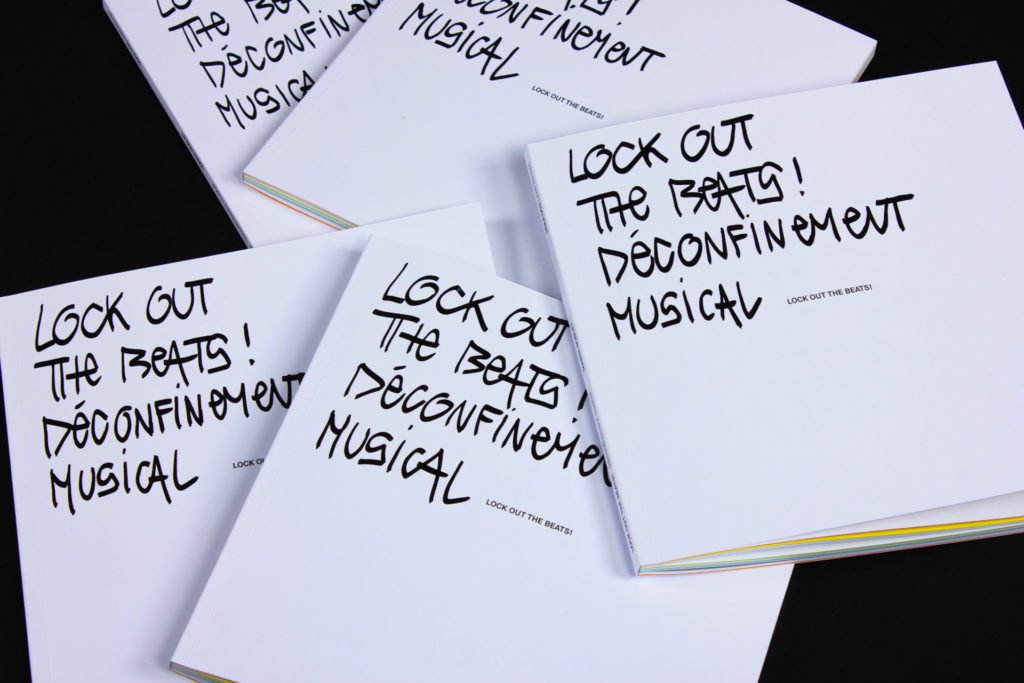 THE
DÉCONFINEMENT
MUSICAL
LOCK OUT THE BEATS!
LOCK OUT
THE BEATS !
DÉCONFINEMENT
MUSICAL
LOCK OUT THE BEATS!
LOCK OUT
THE BEATS !
DÉCONFINEMENT
MUSICAL
LOCK OU
LOCK OUT
THE BEATS !
DÉCONFINEMEN
MUSICAL
LOCK OUT THE BEATS!